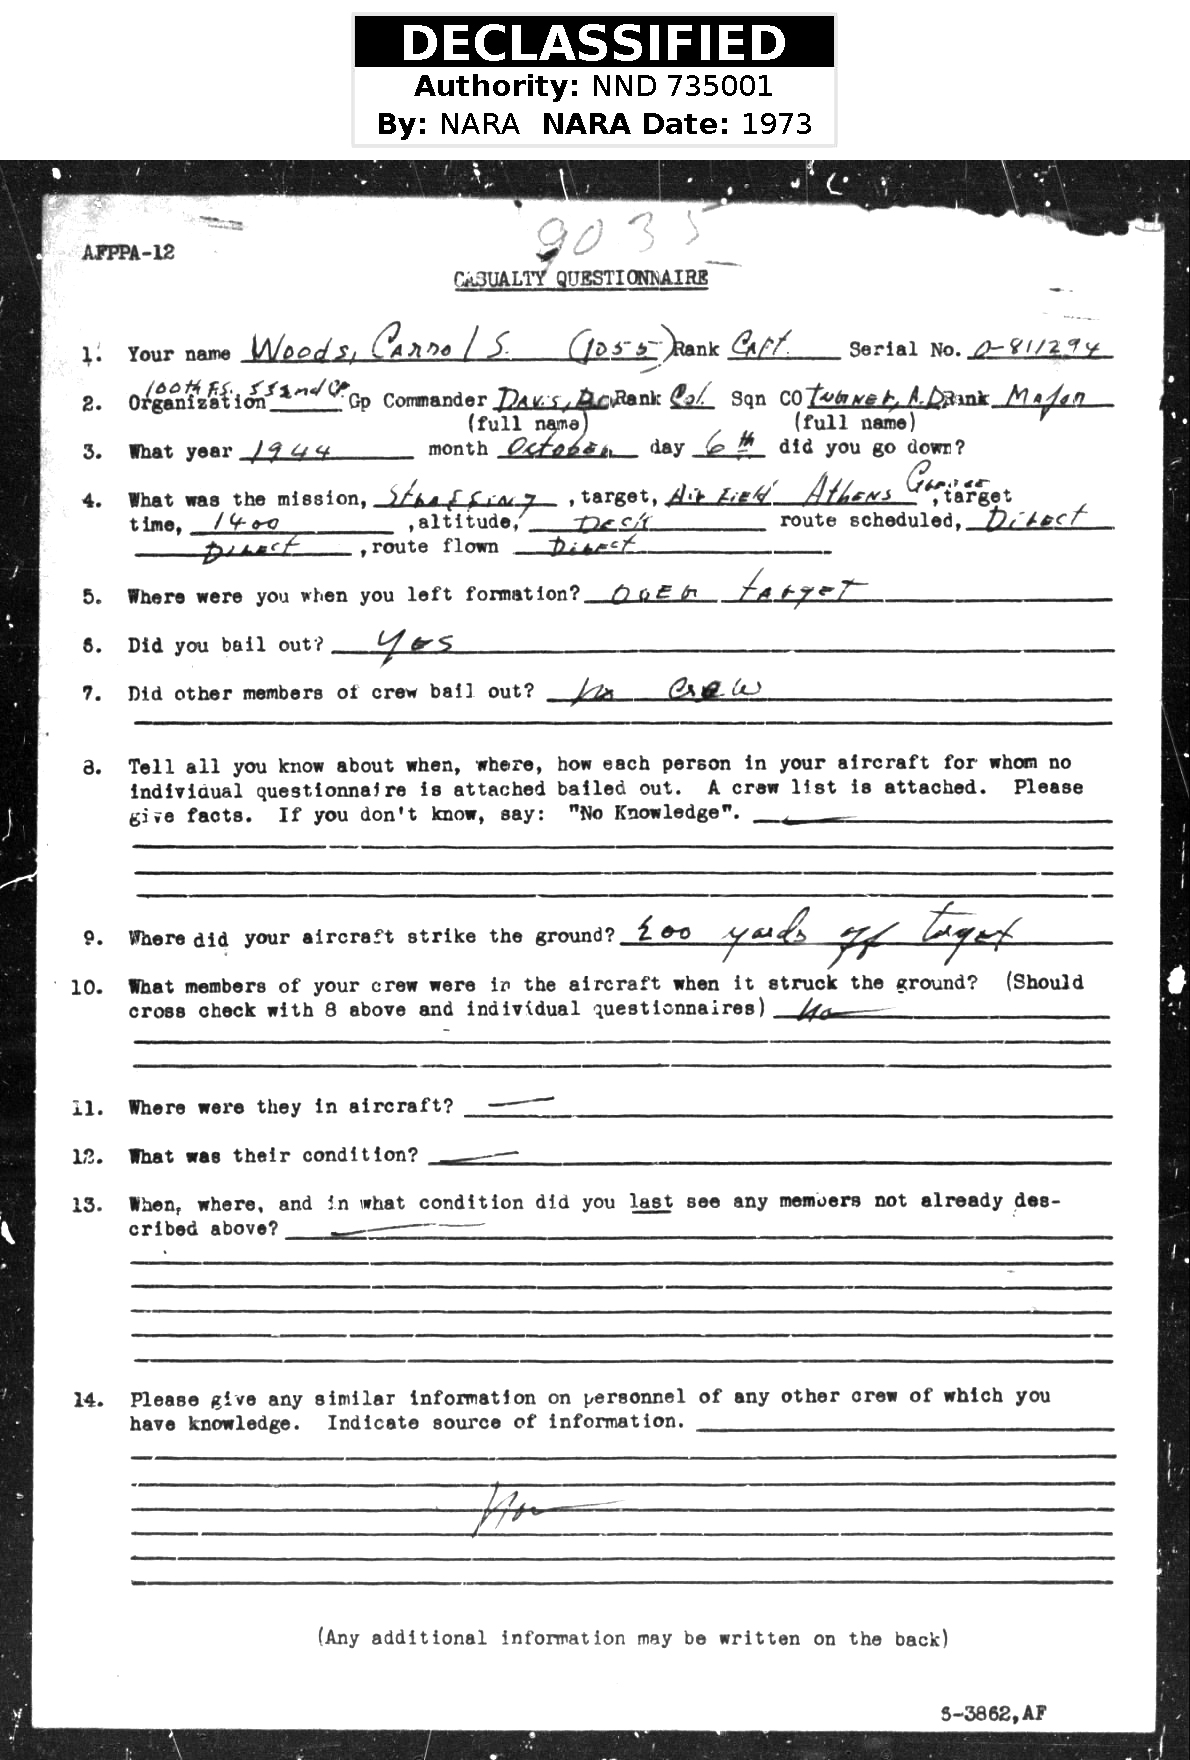 DECLASSIFIED
Authority: NND 735001
By: NARA NARA Date: 1973
9035
AFPPA-12
CASUALTY QUESTIONNAIRE
1. Your name Woods, Carrol S. (1055) Rank Capt. Serial No. O-811294
2. Organization 100th F.S. 332nd Gp Gp Commander Davis, B.O. Rank Col. Sqn CO Turner, A.D. Rank Major
(full name) (full name)
3. What year 1944 month October day 6th did you go down?
4. What was the mission, Strafing, target, Air Field Athens Greece, target
time, 1400, altitude, Deck route scheduled, Direct
Direct, route flown Direct
5. Where were you when you left formation? over target
6. Did you bail out? Yes
7. Did other members of crew bail out? No Crew
8. Tell all you know about when, where, how each person in your aircraft for whom no
individual questionnaire is attached bailed out. A crew list is attached. Please
give facts. If you don't know, say: "No Knowledge".
9. Where did your aircraft strike the ground? 200 yards off target
10. What members of your crew were in the aircraft when it struck the ground? (Should
cross check with 8 above and individual questionnaires) No
11. Where were they in aircraft?
12. What was their condition?
13. When, where, and in what condition did you last see any members not already des-
cribed above?
14. Please give any similar information on personnel of any other crew of which you
have knowledge. Indicate source of information.
(Any additional information may be written on the back)
S-3862,AF